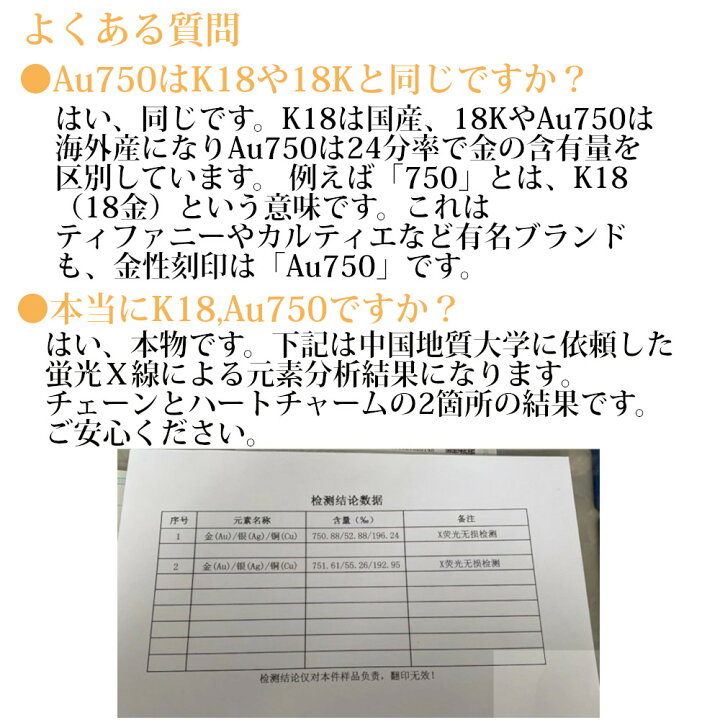 よくある質問
●Au750はK18や18Kと同じですか？
はい、同じです。K18は国産、18KやAu750は
海外産になりAu750は24分率で金の含有量を
区別しています。 例えば「750」とは、K18
（18金）という意味です。これは
ティファニーやカルティエなど有名ブランド
も、金性刻印は「Au750」です。
●本当にK18,Au750ですか？
はい、本物です。下記は中国地質大学に依頼した
蛍光Ｘ線による元素分析結果になります。
チェーンとハートチャームの2箇所の結果です。
ご安心ください。
检测结论数据
序号 元素名称 含量（‰） 备注
1 金(Au)/银(Ag)/铜(Cu) 750.88/52.88/196.24 X荧光无损检测
2 金(Au)/银(Ag)/铜(Cu) 751.61/55.26/192.95 X荧光无损检测
检测结论仅对本件样品负责，翻印无效！